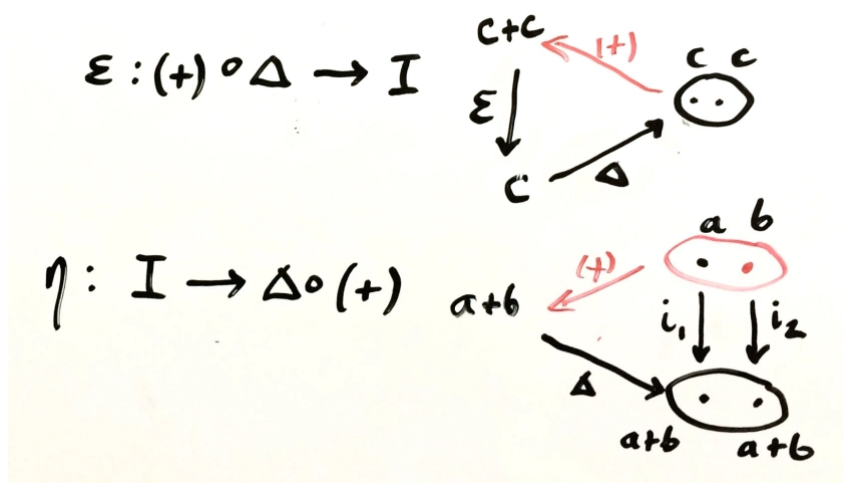 ε : (+) ∘ Δ → I
c+c
(+)
c c
ε
c
Δ
η : I → Δ∘(+)
a b
(+)
a+b
i₁
i₂
Δ
a+b
a+b